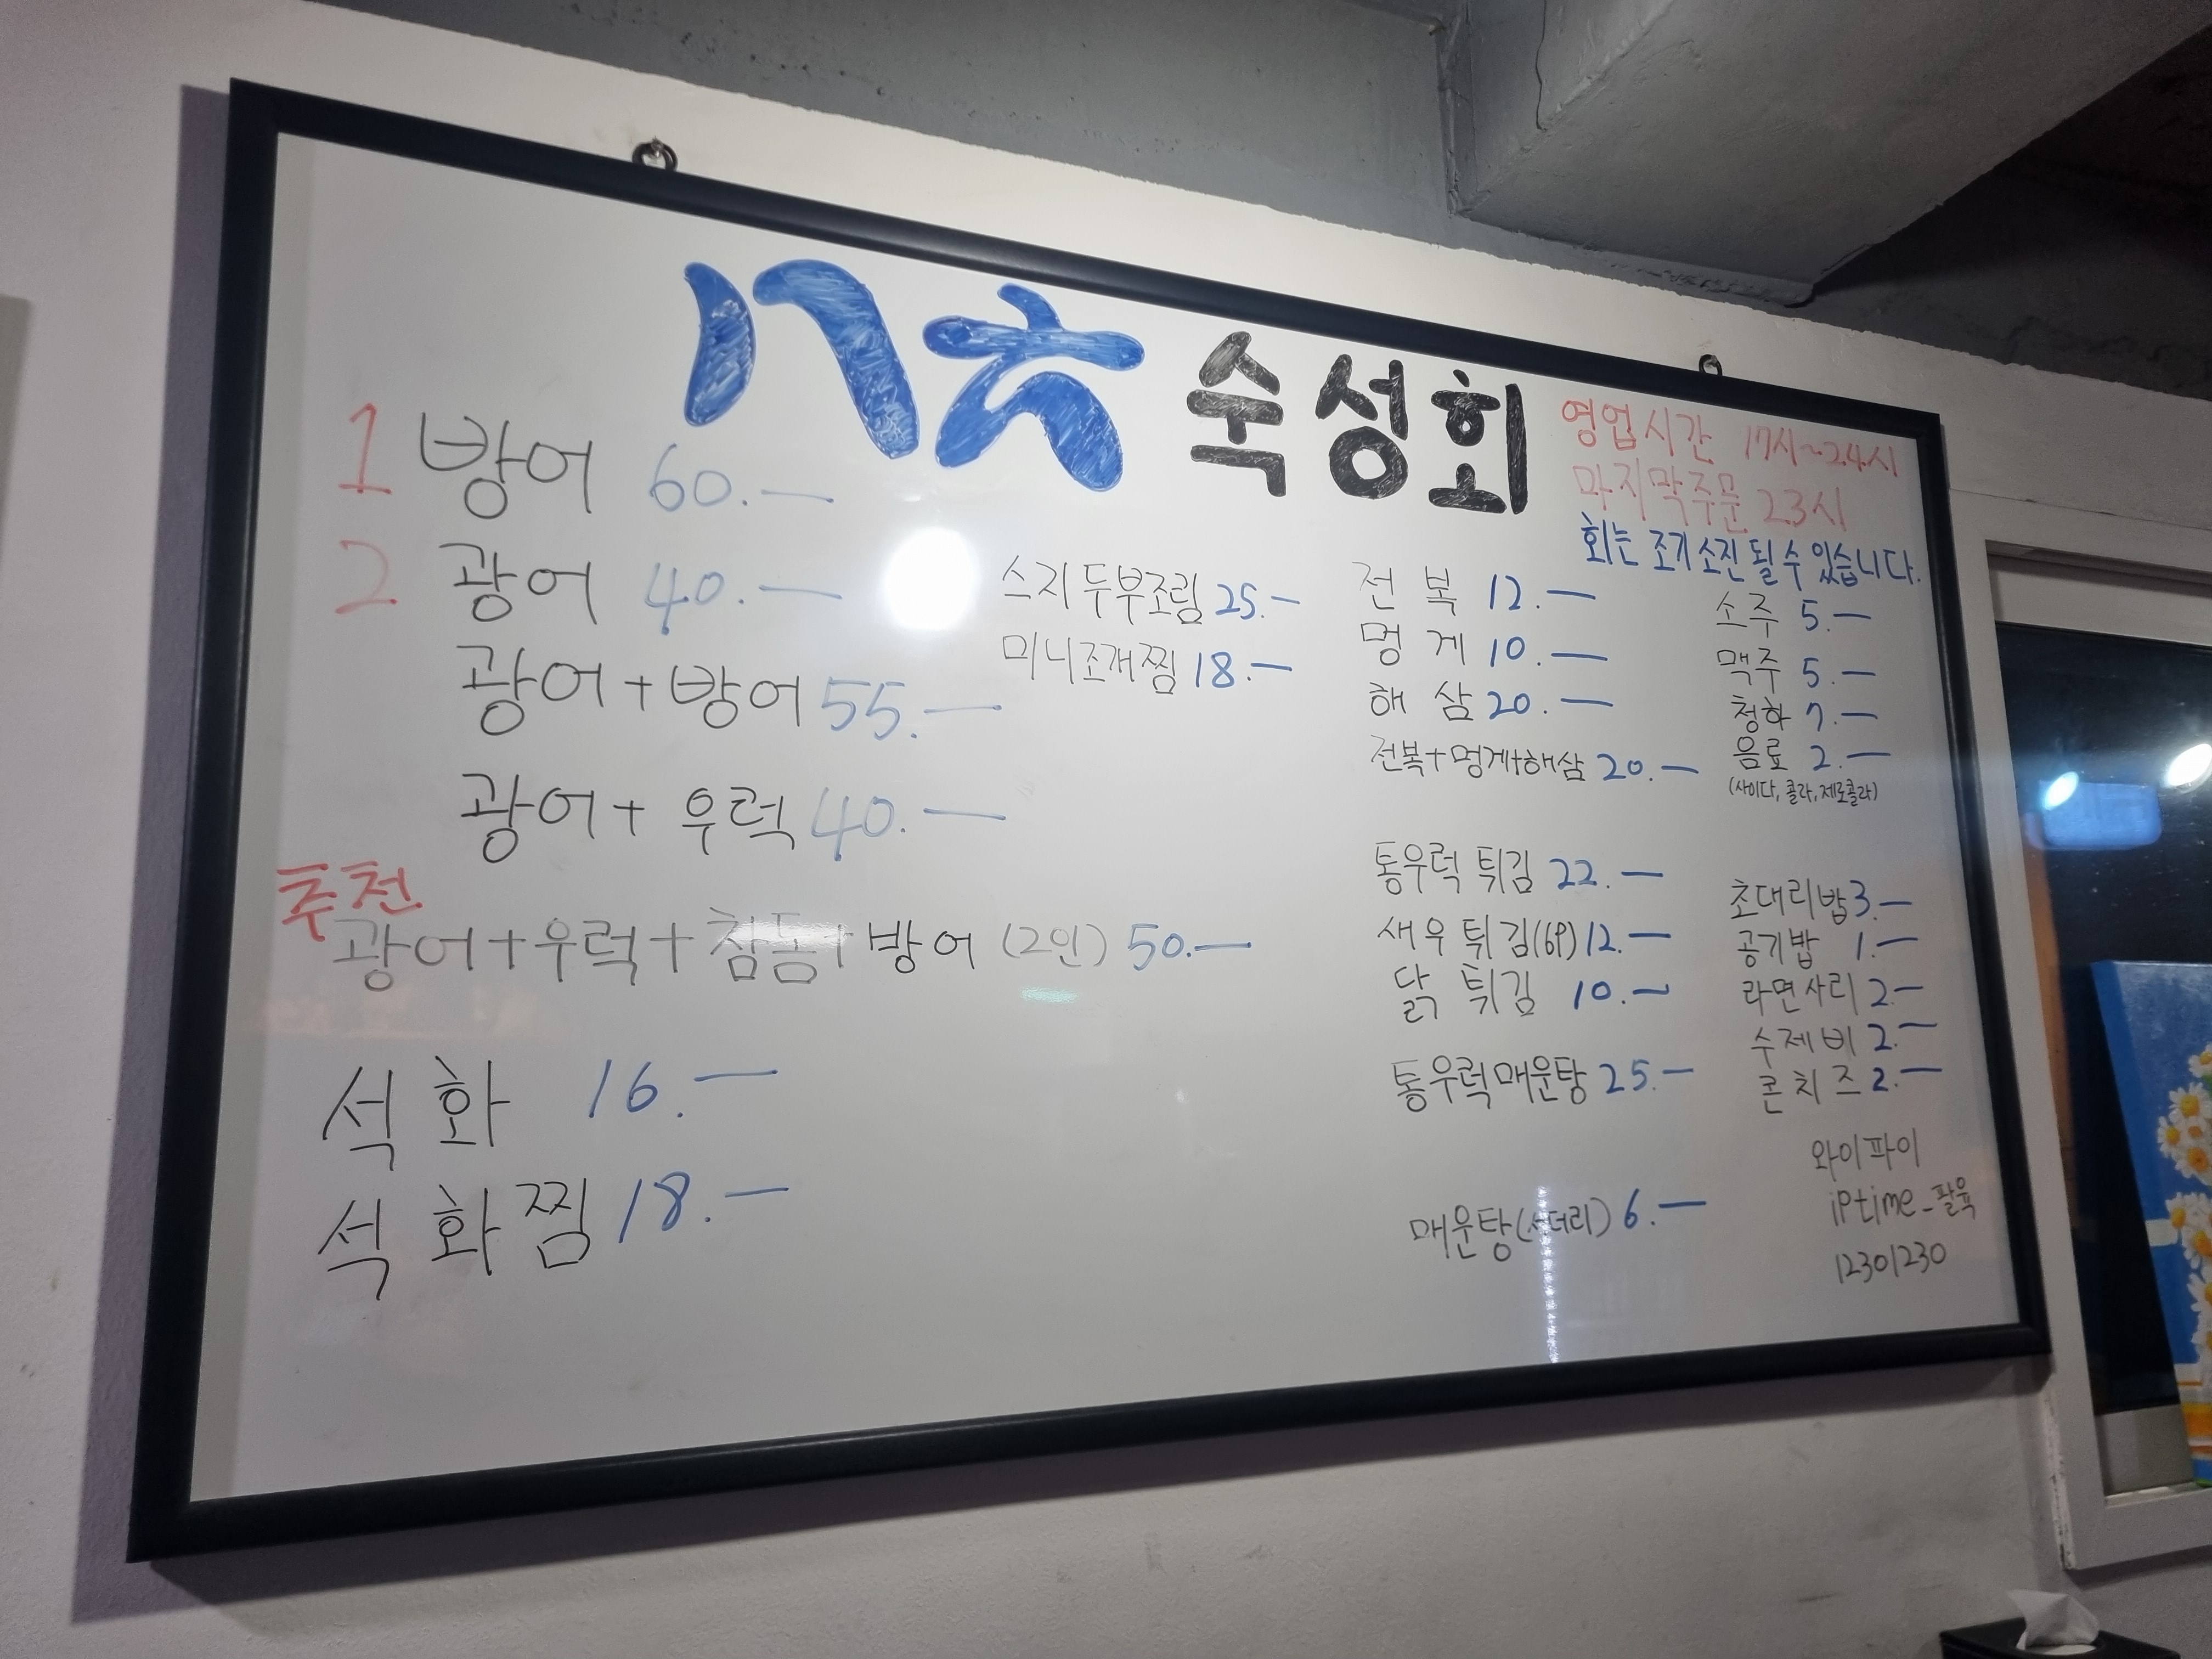 八六 숙성회
영업시간 17시~24시
마지막주문 23시
회는 조기 소진 될 수 있습니다.
1 방어 60.—
2 광어 40.—
광어+방어 55.—
광어+우럭 40.—
추천
광어+우럭+참돔+방어 (2인) 50.—
석화 16.—
석화찜 18.—
스지두부조림 25.—
미니조개찜 18.—
전복 12.—
멍게 10.—
해삼 20.—
전복+멍게+해삼 20.—
통우럭 튀김 22.—
새우 튀김(6P) 12.—
닭 튀김 10.—
통우럭매운탕 25.—
매운탕(서더리) 6.—
소주 5.—
맥주 5.—
청하 7.—
음료 2.—
(사이다, 콜라, 제로콜라)
초대리밥 3.—
공기밥 1.—
라면사리 2.—
수제비 2.—
콘치즈 2.—
와이파이
iptime_팔육
12301230